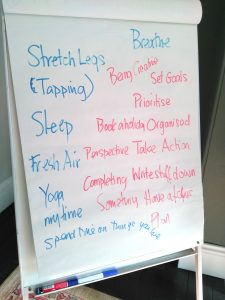 Breathe
Stretch Legs
(Tapping)
Being Creative
Set Goals
Prioritise
Sleep
Book a holiday Organised
Fresh Air
Perspective Take Action
Completing Write stuff down
Something Have a
Yoga
my time
Plan
Spend time on things you love